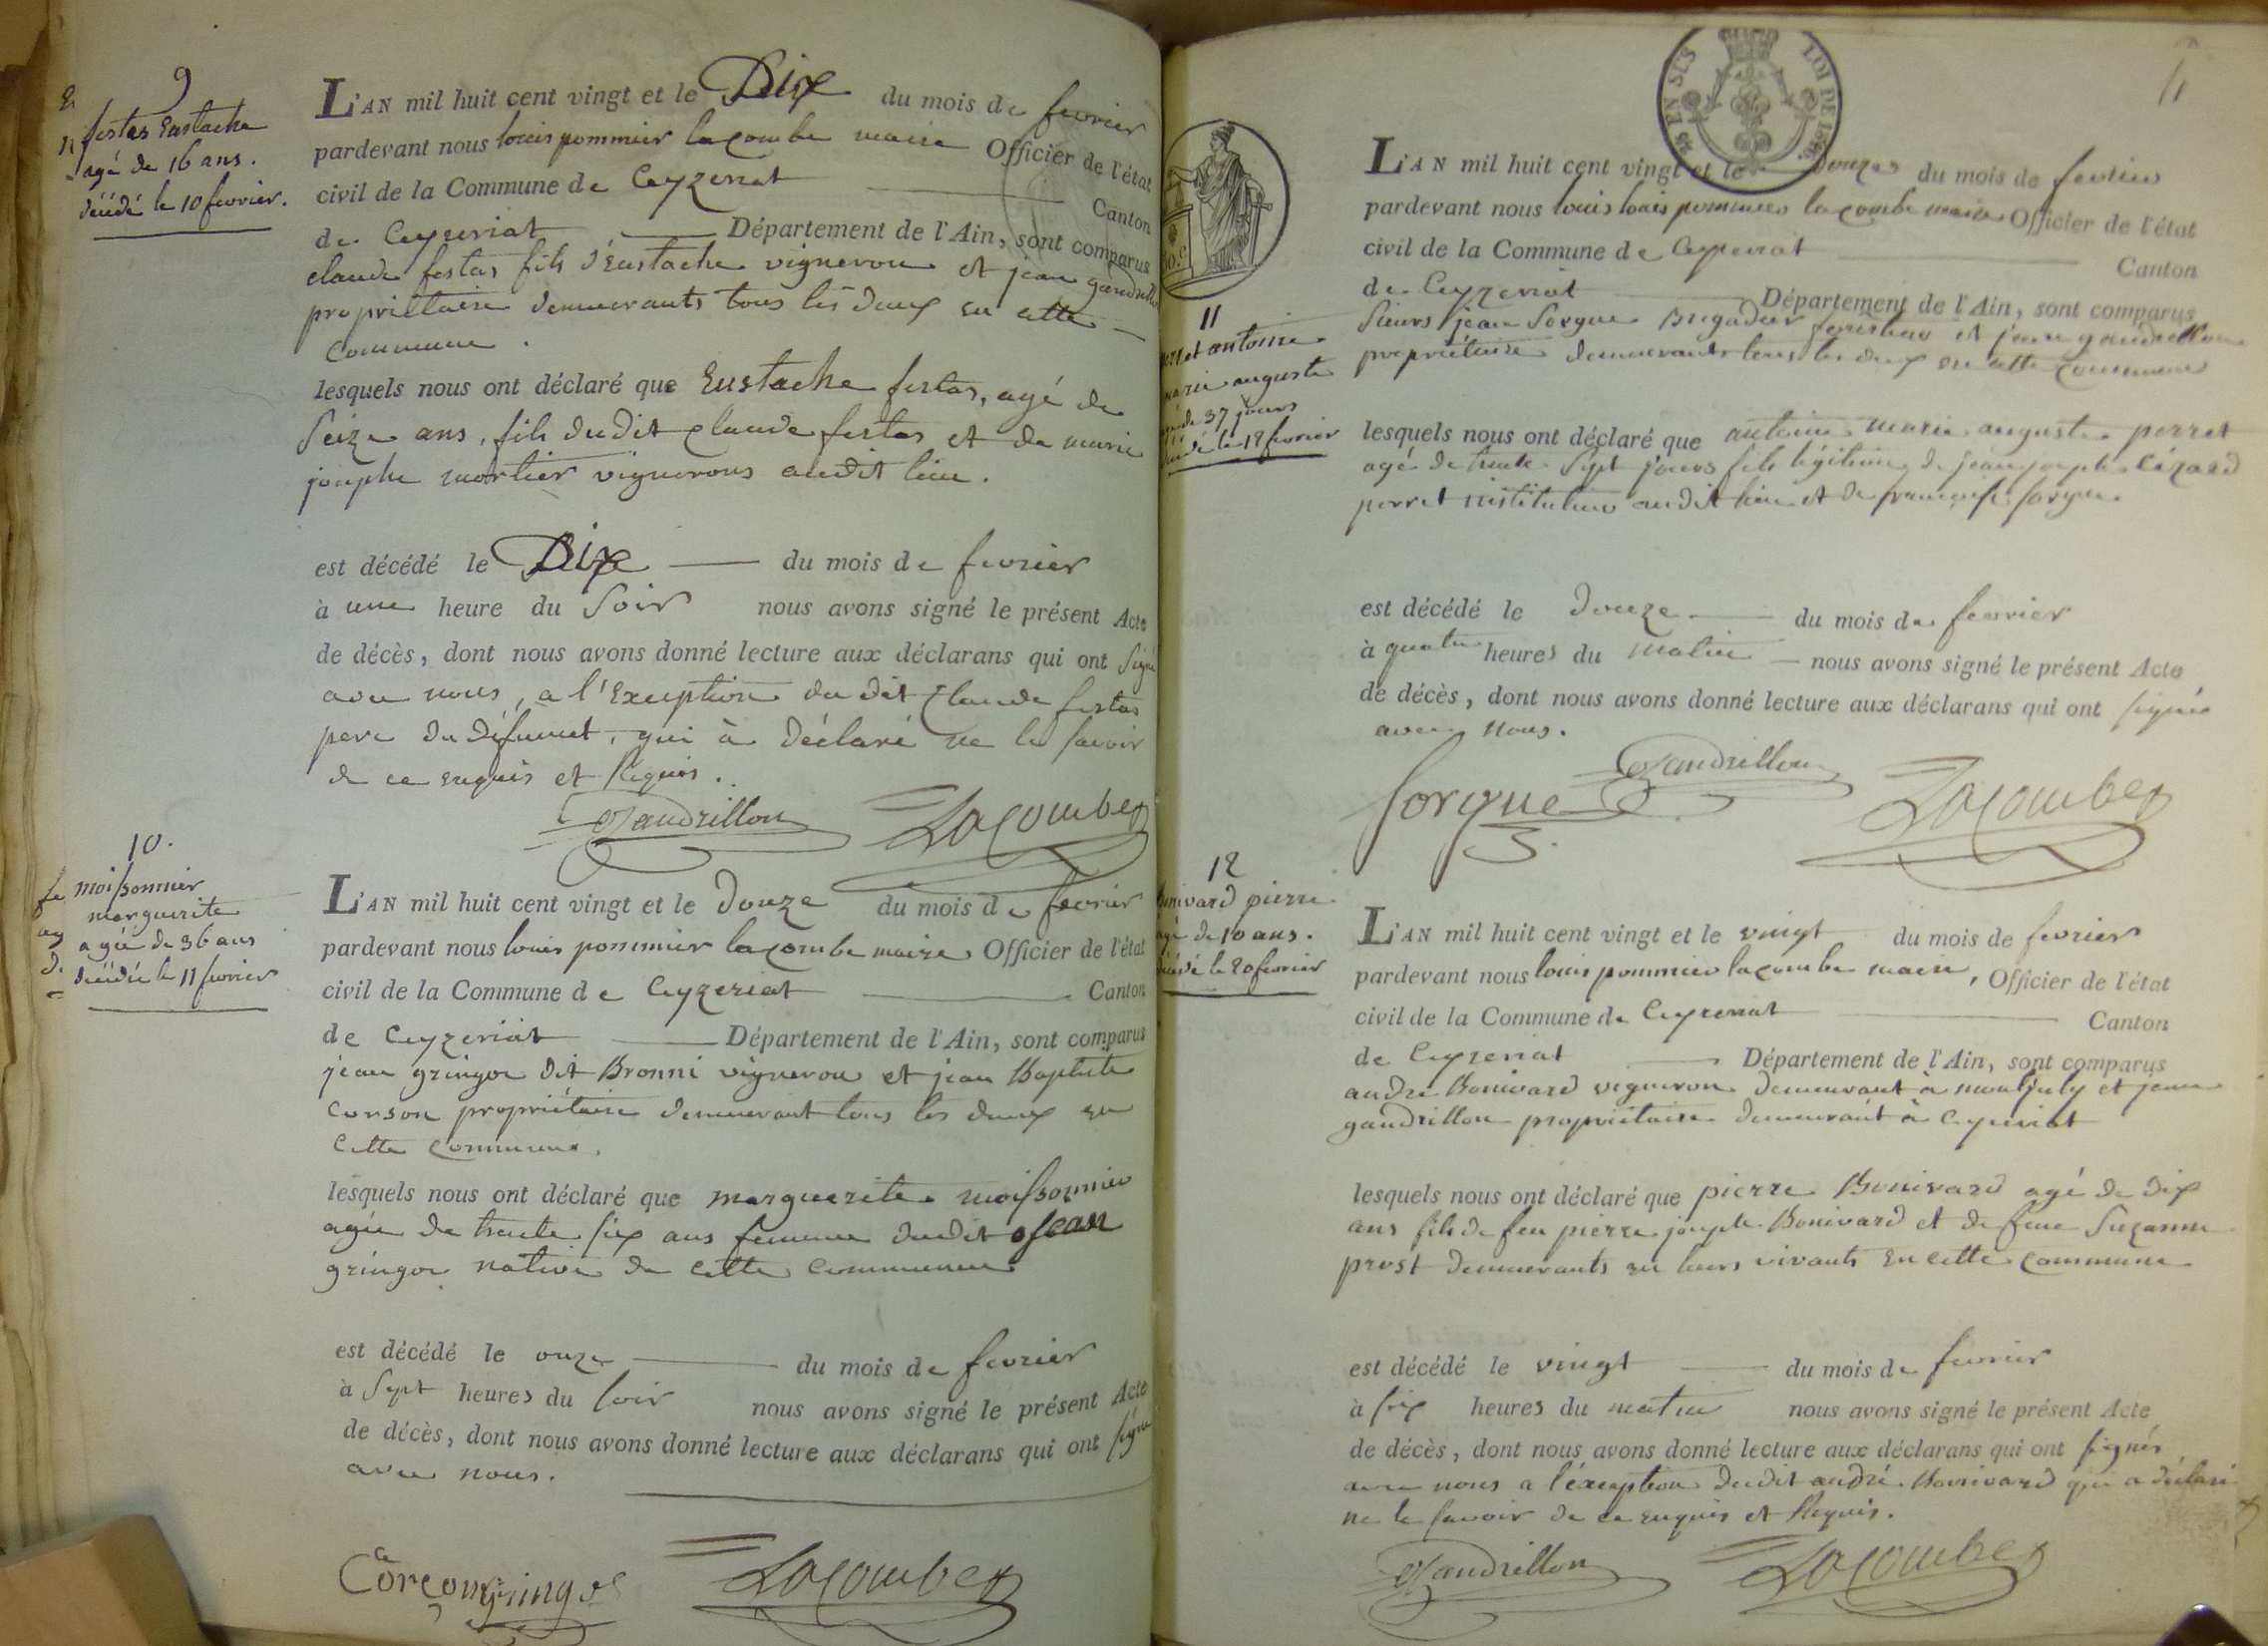 9
festas Eustache
agé de 16 ans.
décédé le 10 fevrier.
L'AN mil huit cent vingt et le Dix du mois de fevrier
pardevant nous louis pommier lacombe maire Officier de l'état
civil de la Commune de Ceyzeriat Canton
de Ceyzeriat Département de l'Ain, sont comparus
claude festas fils d'Eustache vigneron et jean gaudrillon
propriétaire demeurants tous les deux en cette
commune.
lesquels nous ont déclaré que Eustache festas, agé de
Seize ans, fils dudit claude festas et de marie
josephe mortier vignerons audit lieu.
est décédé le Dix du mois de fevrier
à une heure du Soir nous avons signé le présent Acte
de décès, dont nous avons donné lecture aux déclarans qui ont signé
avec nous, a l'Exception du dit Claude festas
pere du défunct, qui à déclaré ne le savoir
de ce enquis et Requis.
Gaudrillon Lacombe
10.
moissonnier
marguerite
agée de 36 ans
décédée le 11 fevrier
L'AN mil huit cent vingt et le douze du mois de fevrier
pardevant nous louis pommier lacombe maire Officier de l'état
civil de la Commune de Ceyzeriat Canton
de Ceyzeriat Département de l'Ain, sont comparus
jean gringoz dit Bronni vigneron et jean Baptiste
corson propriétaire demeurant tous les deux en
cette commune.
lesquels nous ont déclaré que marguerite moissonnier
agée de trente six ans femme dudit Jean
gringoz native de cette commune
est décédé le onze du mois de fevrier
à Sept heures du soir nous avons signé le présent Acte
de décès, dont nous avons donné lecture aux déclarans qui ont signé
avec nous.
Corçon Gringoz Lacombe
11
EN SUS LOI DE 1816
L'AN mil huit cent vingt et le douze du mois de fevrier
pardevant nous louis louis pommier lacombe maire Officier de l'état
civil de la Commune de Ceyzeriat Canton
de Ceyzeriat Département de l'Ain, sont comparus
11
perret antoine
marie auguste
agé de 37 jours
décédé le 12 fevrier
Sieurs jean Sorgue Brigadier forestier et jean gaudrillon
propriétaire demeurants tous les deux en cette commune
lesquels nous ont déclaré que antoine marie auguste perret
agé de trente Sept jours fils légitime de jean joseph cézard
perret instituteur audit lieu et de françoise sorgue.
est décédé le douze du mois de fevrier
à quatre heures du matin nous avons signé le présent Acte
de décès, dont nous avons donné lecture aux déclarans qui ont signés
avec nous.
Sorgue Gaudrillon Lacombe
12
bonivard pierre
agé de 10 ans.
décédé le 20 fevrier
L'AN mil huit cent vingt et le vingt du mois de fevrier
pardevant nous louis pommier lacombe maire, Officier de l'état
civil de la Commune de Ceyzeriat Canton
de Ceyzeriat Département de l'Ain, sont comparus
andré Bonivard vigneron demeurant à montjuly et jean
gaudrillon propriétaire demeurant à Ceyzeriat
lesquels nous ont déclaré que pierre Bonivard agé de dix
ans fils de feu pierre joseph Bonivard et de feue Suzanne
prost demeurants en leurs vivants en cette commune
est décédé le vingt du mois de fevrier
à six heures du matin nous avons signé le présent Acte
de décès, dont nous avons donné lecture aux déclarans qui ont signés
avec nous a l'éxception dudit andré Bonivard qui a déclaré
ne le savoir de ce enquis et Requis.
Gaudrillon Lacombe